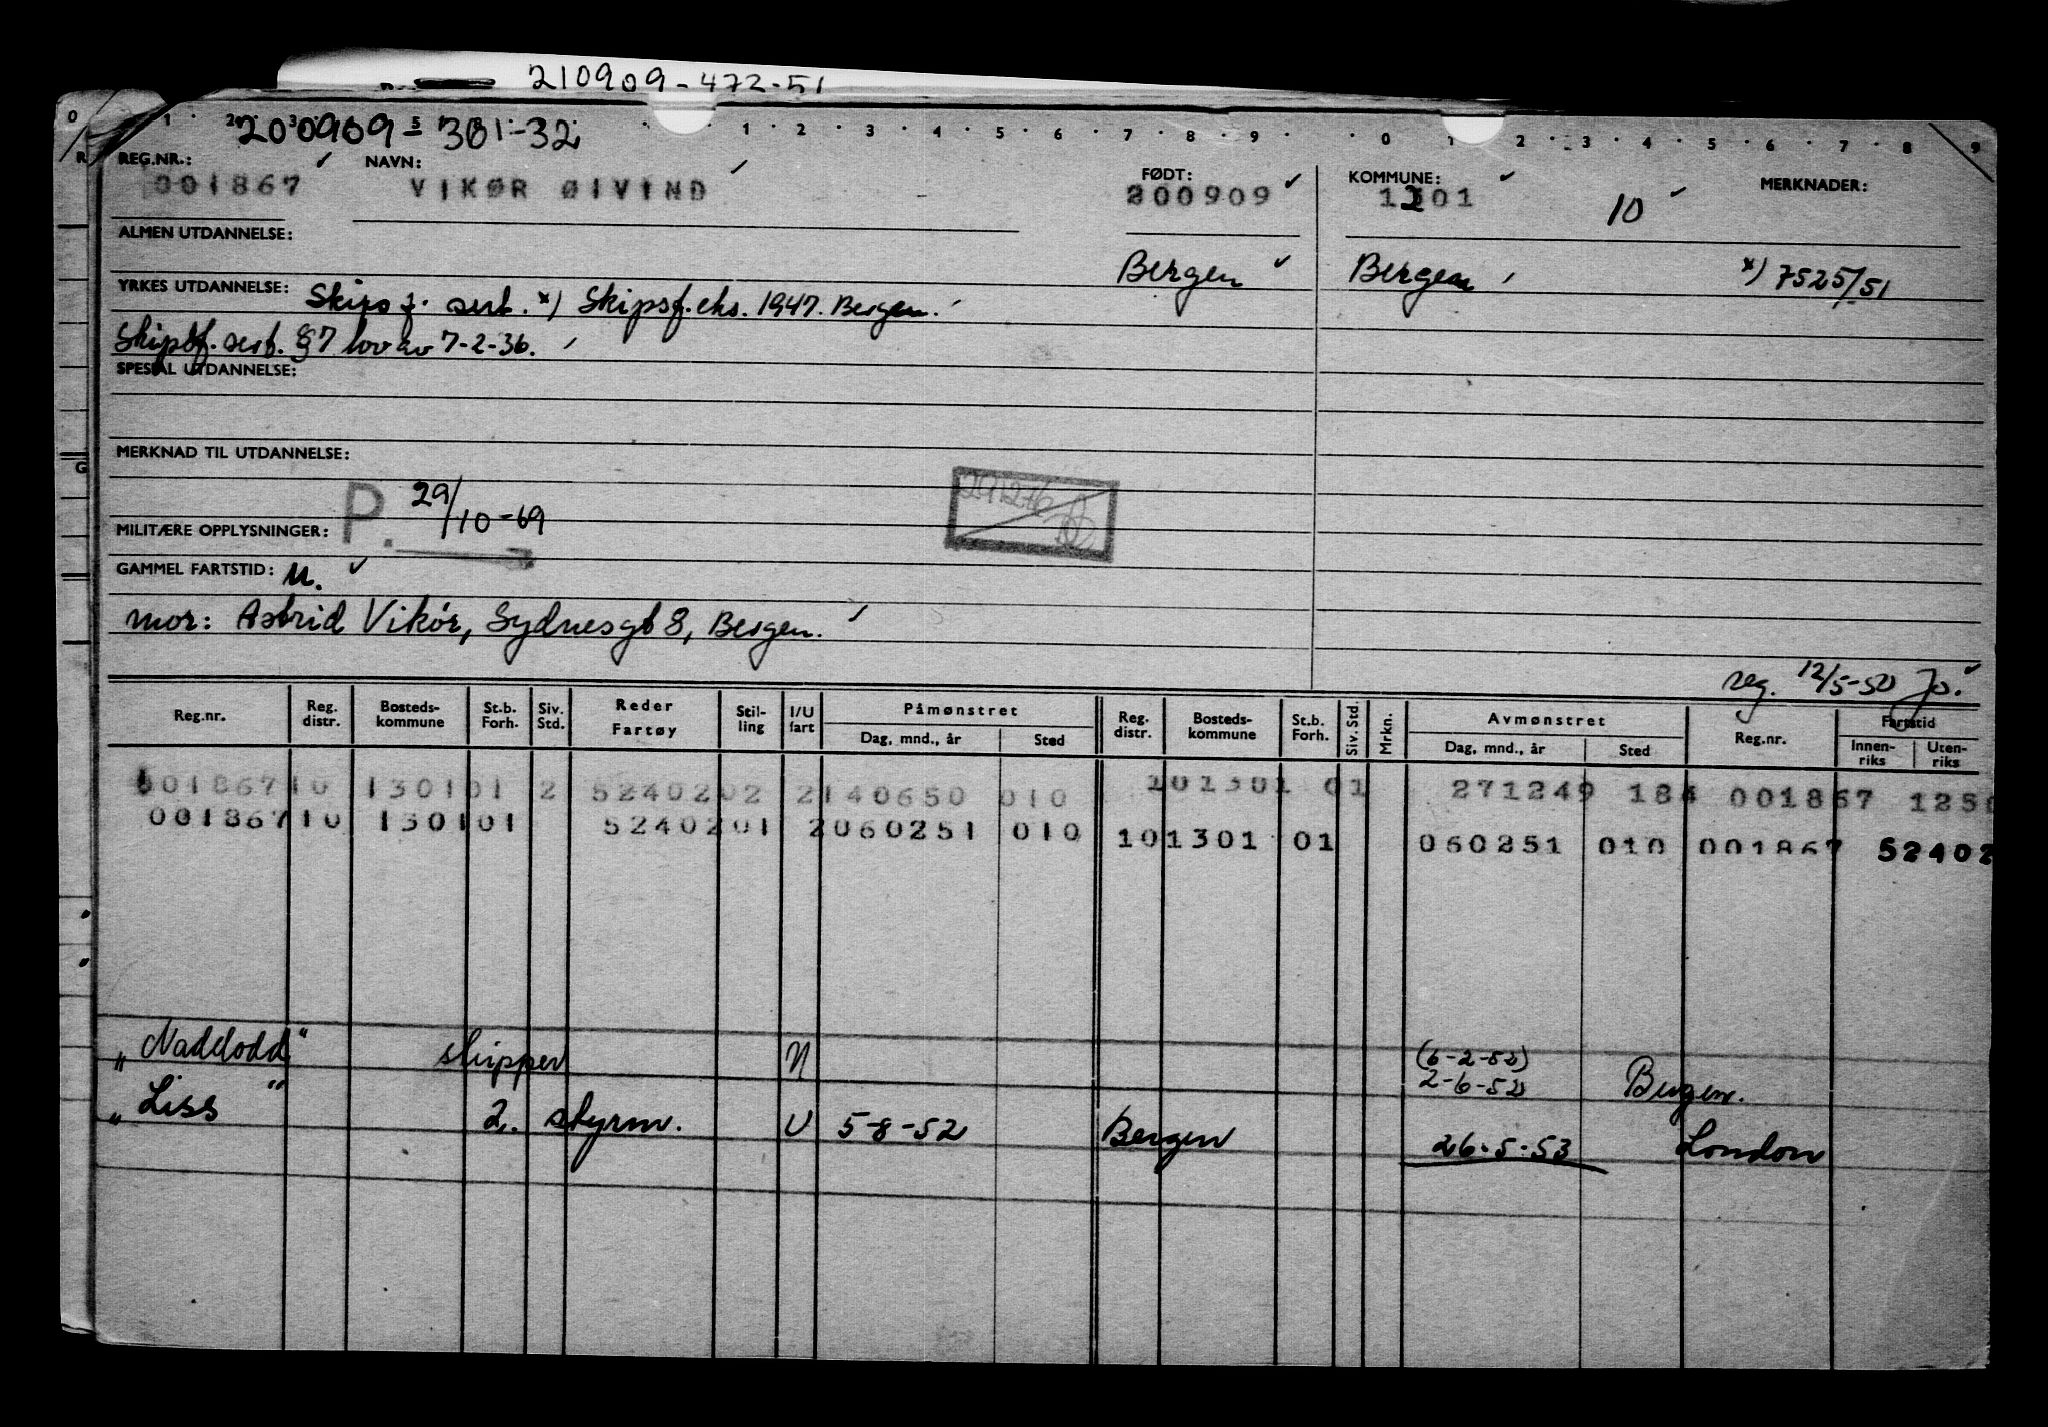 210909-472-51
200909-301-32
0 1 2 3 5 1 2 3 4 5 6 7 8 9 0 1 2 3 4 5 6 7 8 9
REG.NR.: NAVN: FØDT: KOMMUNE: MERKNADER:
001867 VIKØR ØIVIND 200909 1301 10
ALMEN UTDANNELSE: Bergen Bergen x) 7525/51
YRKES UTDANNELSE: Skips f. sert. x) Skipsf.eks. 1947. Bergen.
Skipsf. sert. §7 lov av 7-2-36.
SPESIAL UTDANNELSE:
MERKNAD TIL UTDANNELSE:
P. 29/10-69
MILITÆRE OPPLYSNINGER:
GAMMEL FARTSTID: U.
mor: Astrid Vikør, Sydnesgt 8, Bergen.
reg. 12/5-50 Jo.
Reg.nr. Reg. distr. Bosteds-kommune St.b. Forh. Siv. Std. Reder Fartøy Stil-ling I/U fart Påmønstret Dag, mnd., år Sted Reg. distr. Bosteds-kommune St.b. Forh. Siv. Std. Mrkn. Avmønstret Dag, mnd., år Sted Reg.nr. Fartstid Innen-riks Uten-riks
001867 10 1301 01 2 5240202 2 140650 010 10 1301 01 271249 184 001867 125
001867 10 1301 01 5240201 2 060251 010 10 1301 01 060251 010 001867 52402
"Naddodd" skipper N (6-2-52) 2-6-52 Bergen.
"Liss" 2. styrm. U 5-8-52 Bergen 26.5.53 London